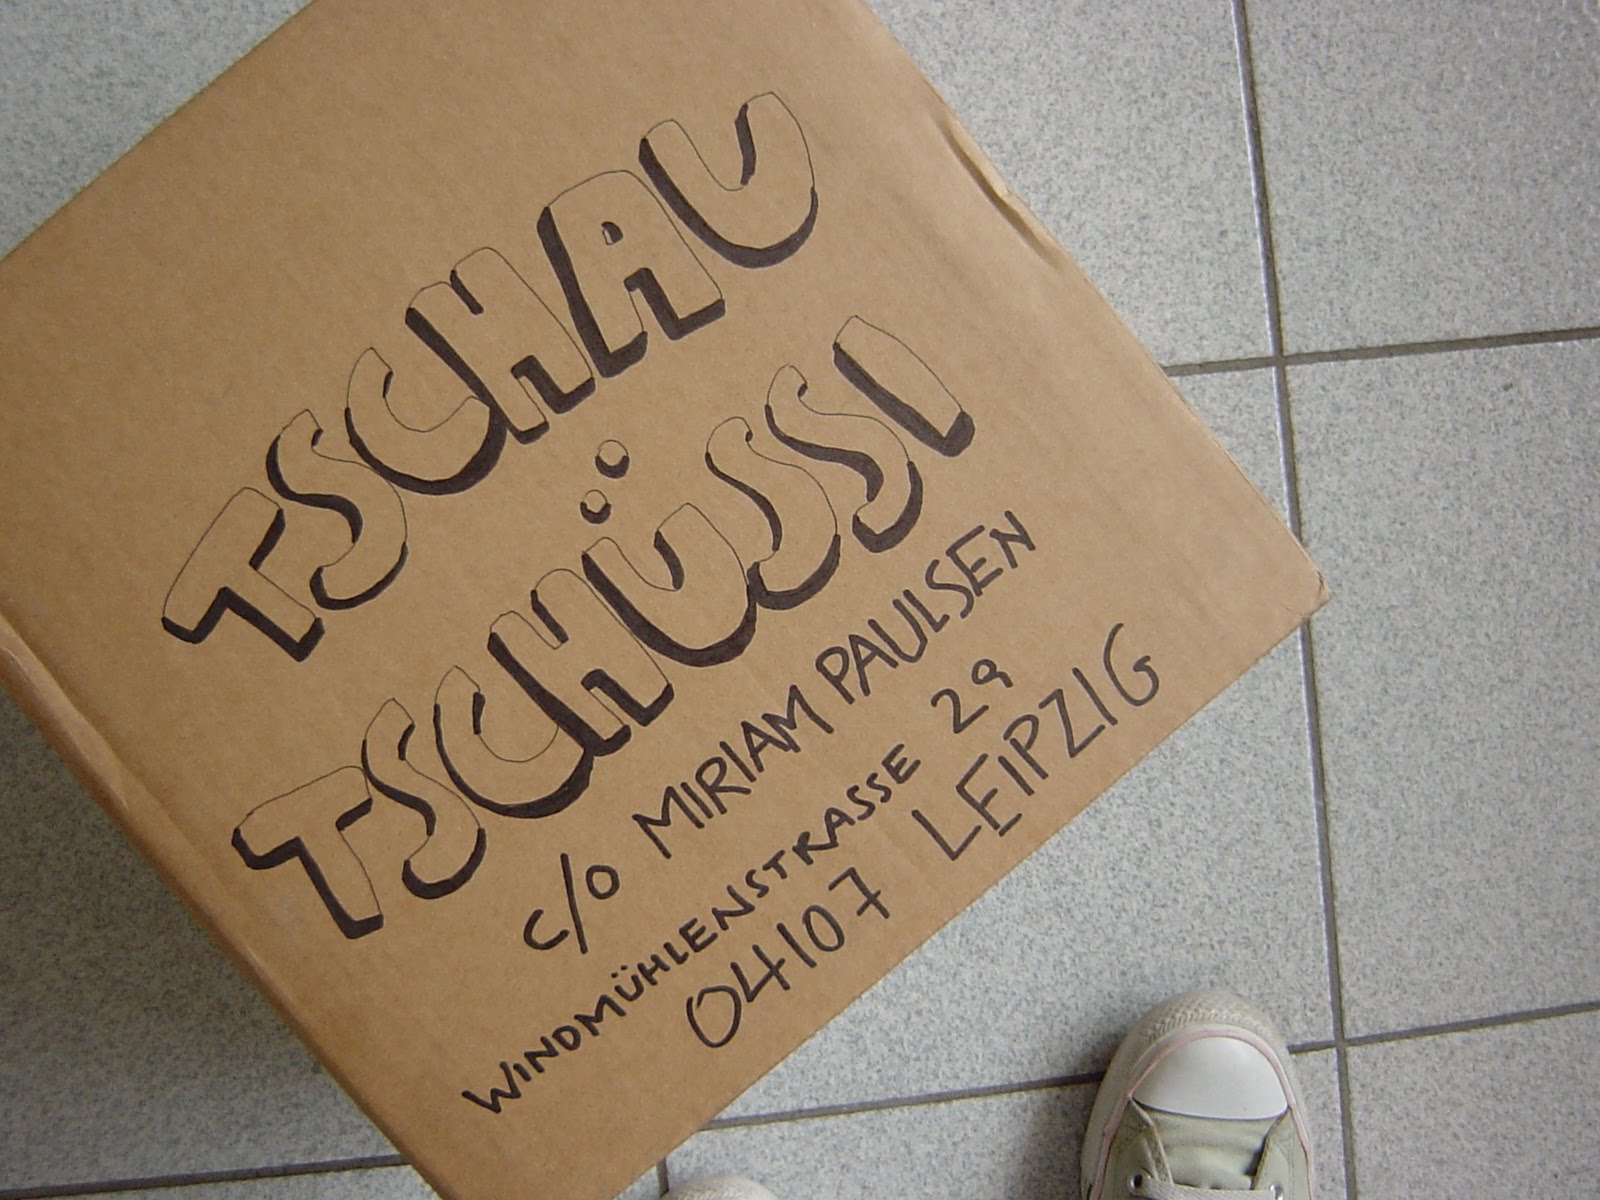 TSCHAU
TSCHÜSSI
c/o MIRIAM PAULSEN
WINDMÜHLENSTRASSE 29
04107 LEIPZIG